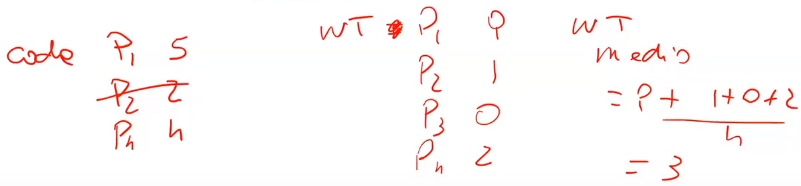 code P₁ 5
P₂ 2
P₄ 4
WT P₁ 9
P₂ 1
P₃ 0
P₄ 2
WT
medio
= 9 + 1+0+2
4
= 3